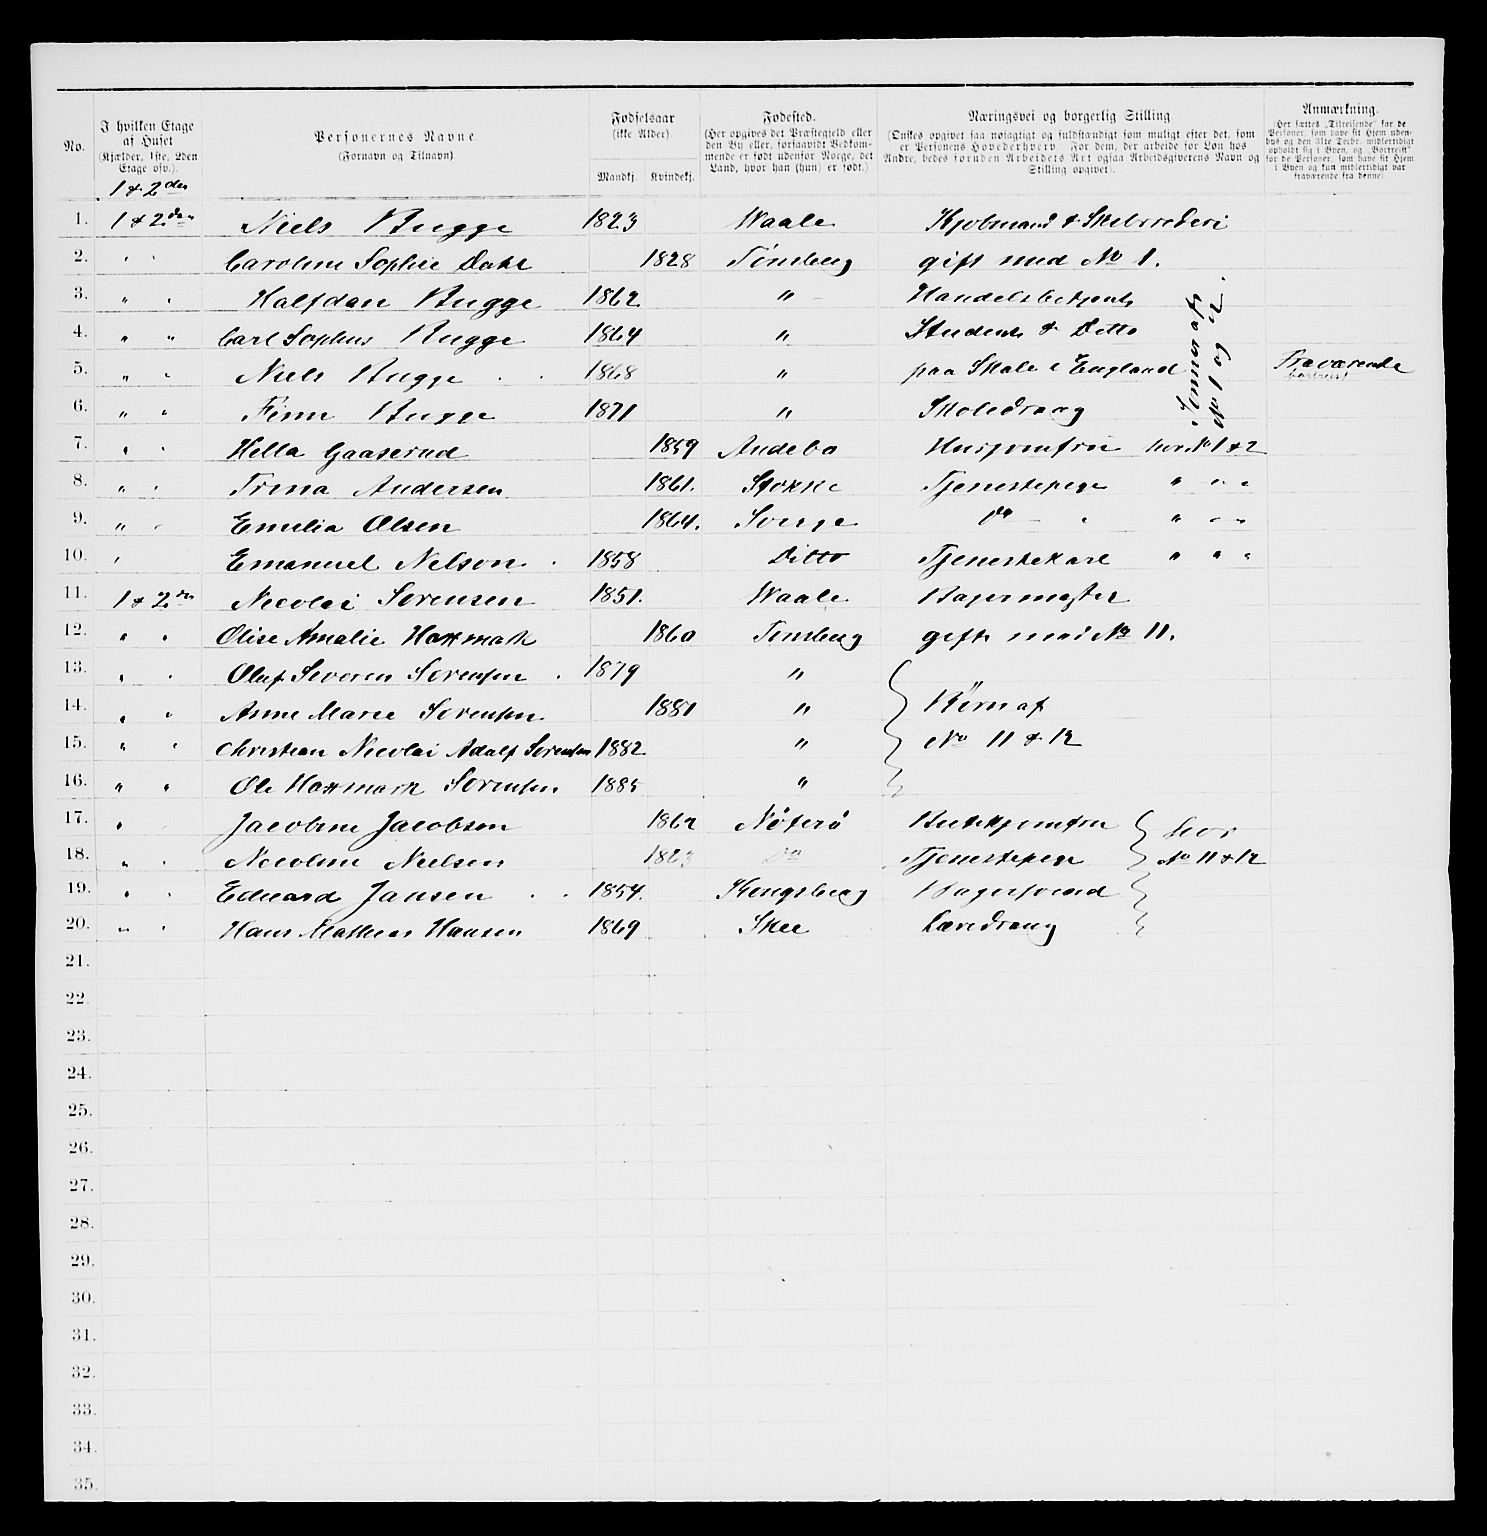 No.
I hvilken Etage af Huset (Kjælder, 1ste, 2den Etage osv.).
Personernes Navne. (Fornavn og Tilnavn)
Fødselsaar (ikke Alder) Mandkj. Kvindekj.
Fødested. (Her opgives det Præstegjeld eller den By eller, forsaavidt Bedkommende er født udenfor Norge, det Land, hvor han (hun) er født.)
Næringsvei og borgerlig Stilling (Ønskes opgivet saa nøiagtigt og fuldstændigt som muligt efter det, som er Personens Hovederhverv. For dem, der arbeide for Løn hos Andre, bedes foruden Arbeidets Art ogsaa Arbeidsgiverens Navn og Stilling opgivet).
Anmærkning. (Her sættes „Tilreisende" for de Personer, som have sit Hjem udenbys og den 31te Decbr. midlertidigt opholdt sig i Byen, og „Bortreist" for de Personer, som have sit Hjem i Byen og kun midlertidigt var fraværende fra denne).
1 & 2den
1. 1 & 2den Niels Bugge 1823 Waale Kjøbmand & Skibsrederi
2. " " Caroline Sophie Dahl 1828 Tønsberg gift med No 1.
3. " " Halfdan Bugge 1862 " Handelsbetjent
4. " " Carl Sophus Bugge 1864 " Student & Ditto
5. " " Niels Bugge 1868 " paa Skole i England Fraværende bortreist
6. " " Finn Bugge 1871 " Skoledreng
Sønner af No 1 og 2.
7. " " Hella Gaaserud 1859 Andebo Husjomfru hos No 1 & 2
8. " " Trina Andersen 1861. Stokke Tjenestepige " " "
9. " " Emelia Olsen 1864. Sverge Do " " "
10. " Emanuel Nelson 1858 Ditto Tjenestekarl " " "
11. 1 & 2den Nicolai Sørensen 1851. Waale Bagermester
12. " " Olise Amalie Hoxmark 1860 Tønsberg gift med No 11.
13. " " Oluf Severin Sørensen 1879 "
14. " " Anne Marie Sørensen 1881 " Børn af
15. " " Christian Nicolai Adolf Sørensen 1882 " No 11 & 12
16. " " Ole Hoxmark Sørensen 1885 "
17. " Jacobine Jacobsen 1862 Nøterø Butikjomfru hos
18. " " Nicoline Nielsen 1823 Do Tjenestepige No 11 & 12
19. " " Edvard Jansen 1854. Kongsberg Bagersvend
20. " " Hans Mathias Hansen 1869 Skee Læredreng
21.
22.
23.
24.
25.
26.
27.
28.
29.
30.
31.
32.
33.
34.
35.